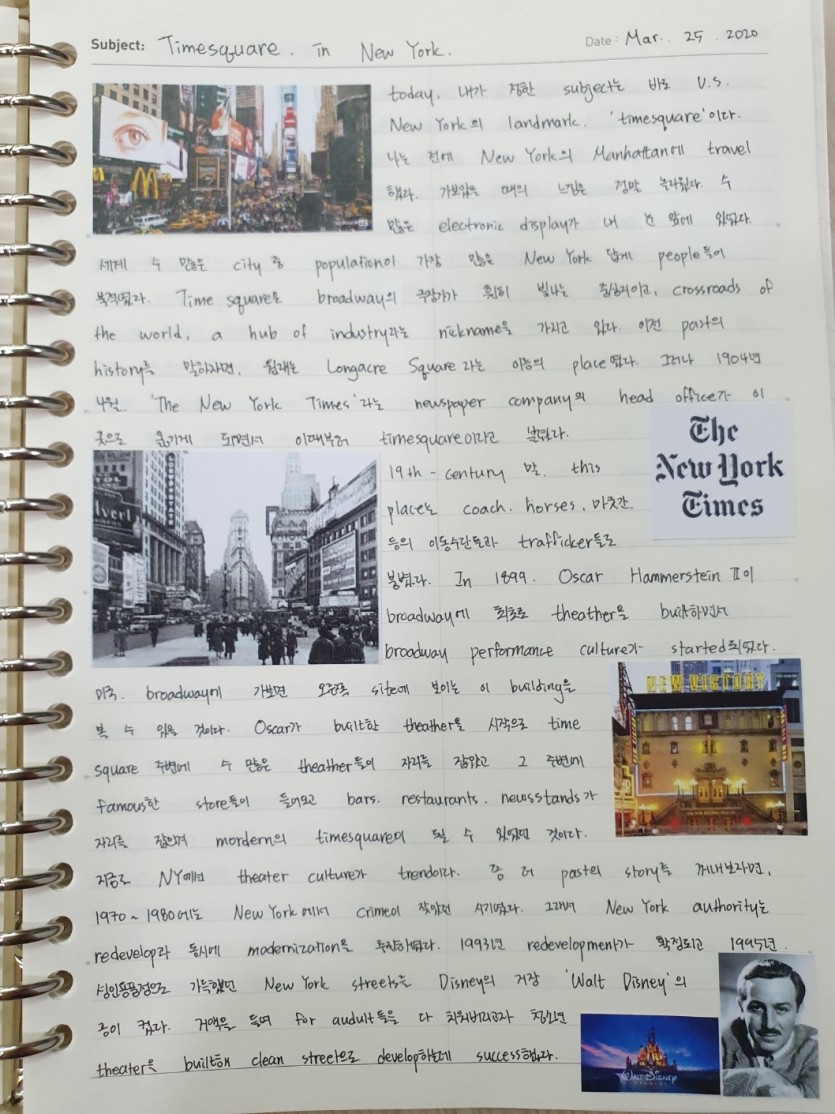 Subject: Timesquare. in New York. Date: Mar. 25. 2020
today. 내가 정한 subject는 바로 U.S.
New York의 landmark. 'timesquare'이다.
나는 전에 New York의 Manhattan에 travel
했다. 가보았을 때의 느낌은 정말 놀라웠다. 수
많은 electronic display가 내 눈 앞에 있었다.
세계 수 많은 city 중 population이 가장 많은 New York 답게 people들이
북적였다. Time square은 broadway의 극장가가 훤히 빛나는 중심지이고, crossroads of
the world, a hub of industry라는 nickname을 가지고 있다. 이전 past의
history를 말하자면, 원래는 Longacre Square라는 이름의 place였다. 그러나 1904년
4월. 'The New York Times'라는 newspaper company의 head office가 이
곳으로 옮기게 되면서 이때부터 timesquare이라고 불렸다.
The
New York
Times
19th-century 말. this
place는 coach, horses, 마굿간
등의 이동수단들과 trafficker들로
붐볐다. In 1899. Oscar Hammerstein II이
broadway에 최초로 theather을 built하면서
broadway performance culture가 started되었다.
미국. broadway에 가보면 오른쪽 site에 보이는 이 building을
볼 수 있을 것이다. Oscar가 built한 theather을 시작으로 time
square 주변에 수 많은 theather들이 자리를 잡았고 그 주변에
famous한 store들이 들어오고 bars. restaurants. newsstands가
자리를 잡으며 mordern의 timesquare이 될 수 있었던 것이다.
NEW VICTORY
지금도 NY에선 theater culture가 trend이다. 좀 더 past의 story를 꺼내보자면,
1970~1980에는 New York에서 crime이 잦았던 시기였다. 그래서 New York authority는
redevelop과 동시에 modernization을 추진하였다. 1993년 redevelopment가 확정되고 1995년.
성인용품점으로 가득했던 New York streets는 Disney의 거장 'Walt Disney'의
공이 컸다. 거액을 들여 for audult들을 다 치워버리고자 청소년
theater을 built해 clean street으로 develop하는데 success했다.
WALT DISNEY
STUDIOS